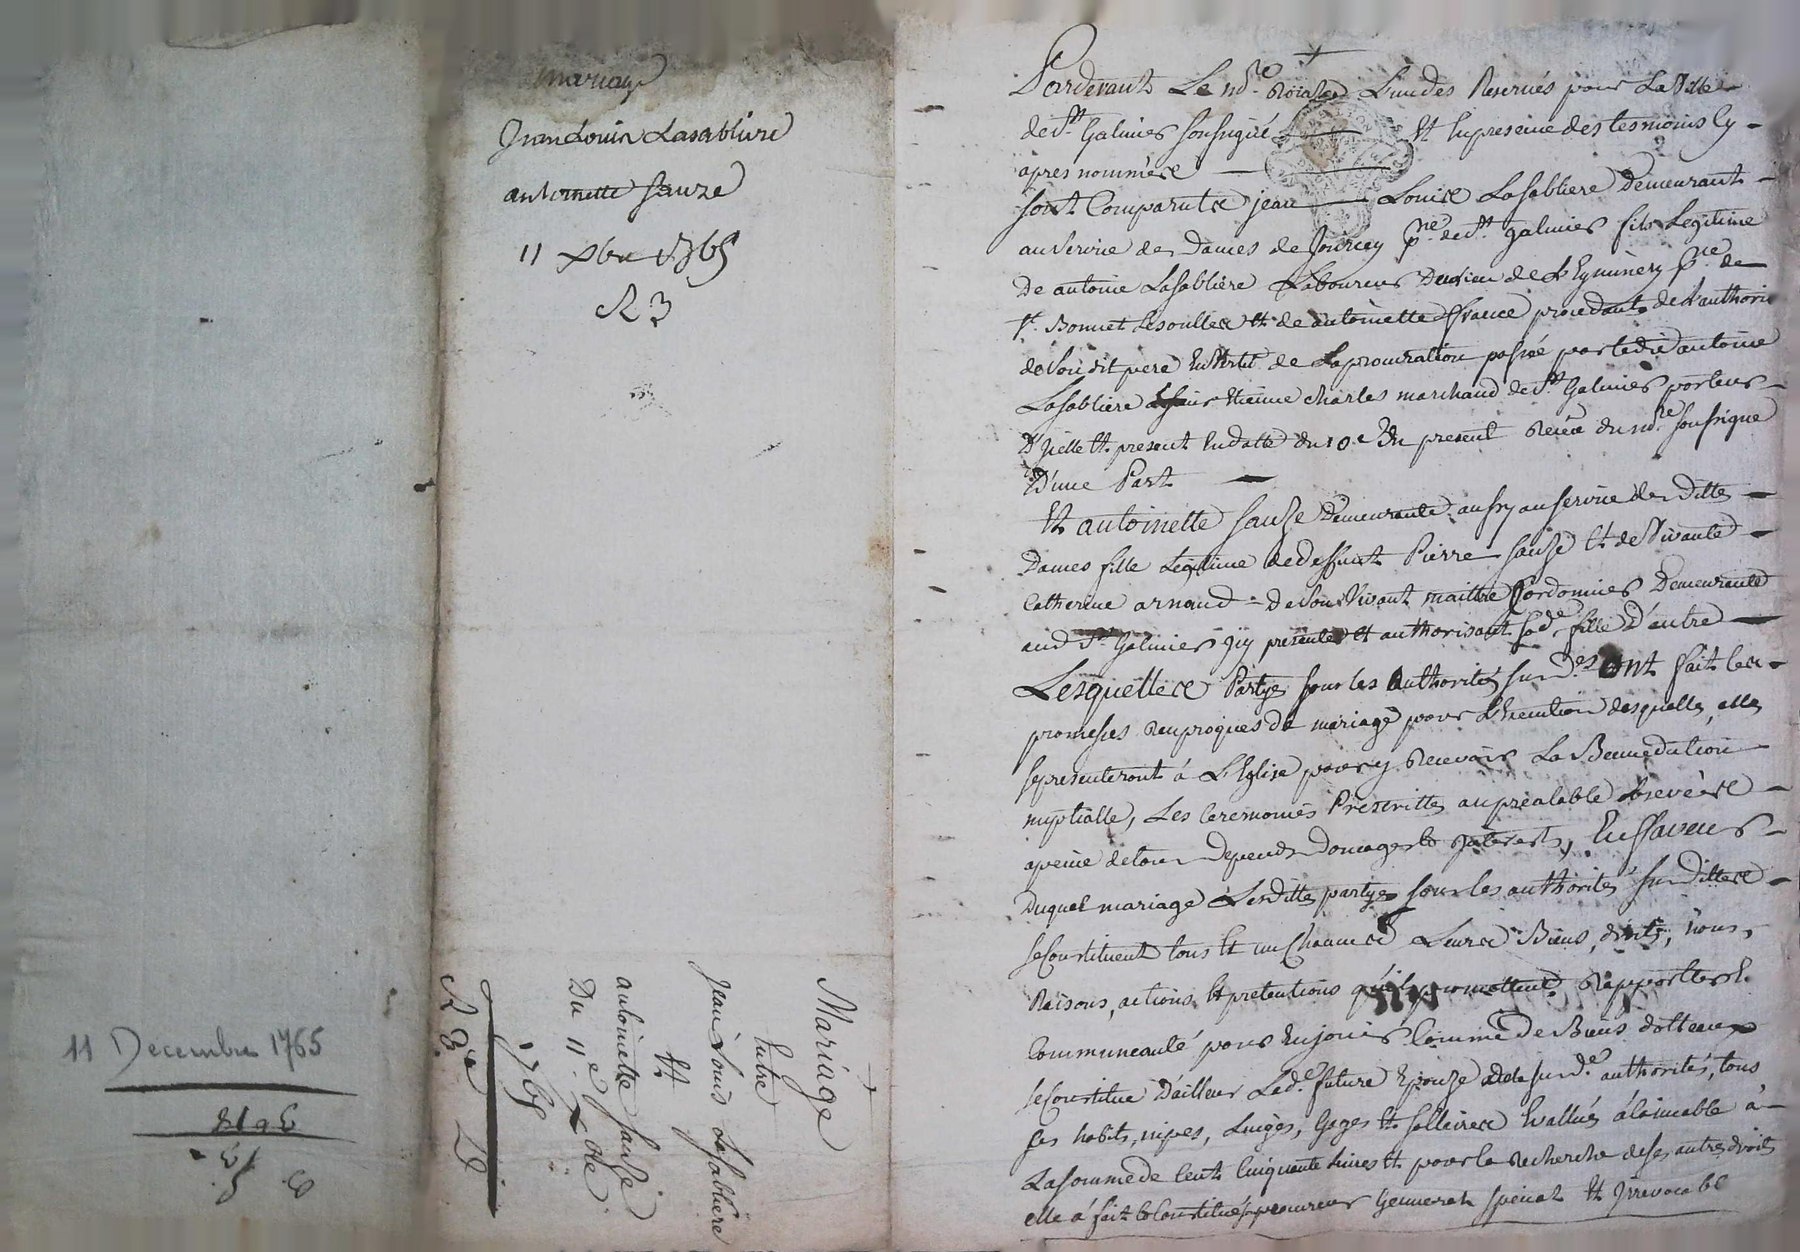 11 Decembre 1765
3618
mariage
Jean Louis Lasabliere
antoinette Sauze
11 xbre 1765
R 3
Mariage
Entre
Jean Louis Lasabliere
Et
antoinette Sauze
Du 11e Xbre
1765
Pardevant Le No.re Roial Reservés pour La Ville
de St. Galmier soussigné Et En presence des tesmoins Cy
apres nommées
sont Comparutes jean Louis Lasabliere Demeurant
au service des Dames de Jourcey p.sse de St. galmier fils Legitime
De antoine Lasabliere Laboureur Du Lieu de p.sse de
St. Bonnet Lesoulles et de antoinette france procedant de L'authorité
de son dit pere En Vertu de La procuration passée par ledit antoine
Lasabliere Etienne Charles marchand de St. Galmier porteur
D'Icelle Et present En datte du 10e Du present Receu du no.re soussigné
D'une Part
Et antoinette Sauze Demeurante aussy au service des Dittes
Dames fille Legitime de deffunt Pierre Sauze Et de Vivante
Catherine arnaud De son Vivant maittre Cordonnier Demeurante
aud. St. Galmier Icy presente et authorisant sad.e fille D'autre
Lesquelles Partyes sous les authorités susd.es ont fait les
promesses Reciproques de mariage pour L'Execution desquelles, elles
se presenteront á L'Eglise pour y Recevoir La Benediction
nuptialle, Les Ceremonies Prescrittes au prealable observées
apeine de tous Depends Domages Et Interests, En faveur
Duquel mariage Lesdittes partyes sous les authorités susdittes
se Constituent tous Et un Chacun Leurs Biens, droits, noms,
Raisons, actions Et pretentions qu'ils promettent Rapporter En
Communeauté pour En jouir Comme De Biens dotteaux
se Constitue D'ailleurs Lad.e future Epouze de susd.e authorités, tous
ses habits, nipes, Linges, Gages Et sallaires Evallués á l'aimeable á
La somme de Cent Cinquante livres Et pour la Recherche de ses autres droits
elle á fait Et Constitué procureur General special Et Irrevocable